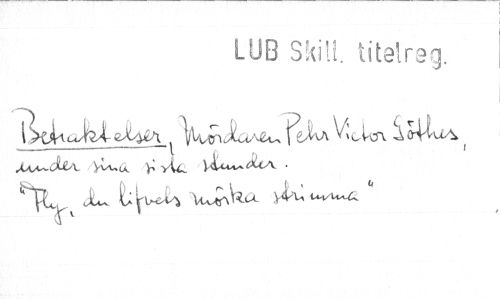 LUB Skill. titelreg.
Betraktelser, Mördaren Pehr Victor Göthes,
under sina sista stunder.
"Fly, du lifvets mörka strimma"